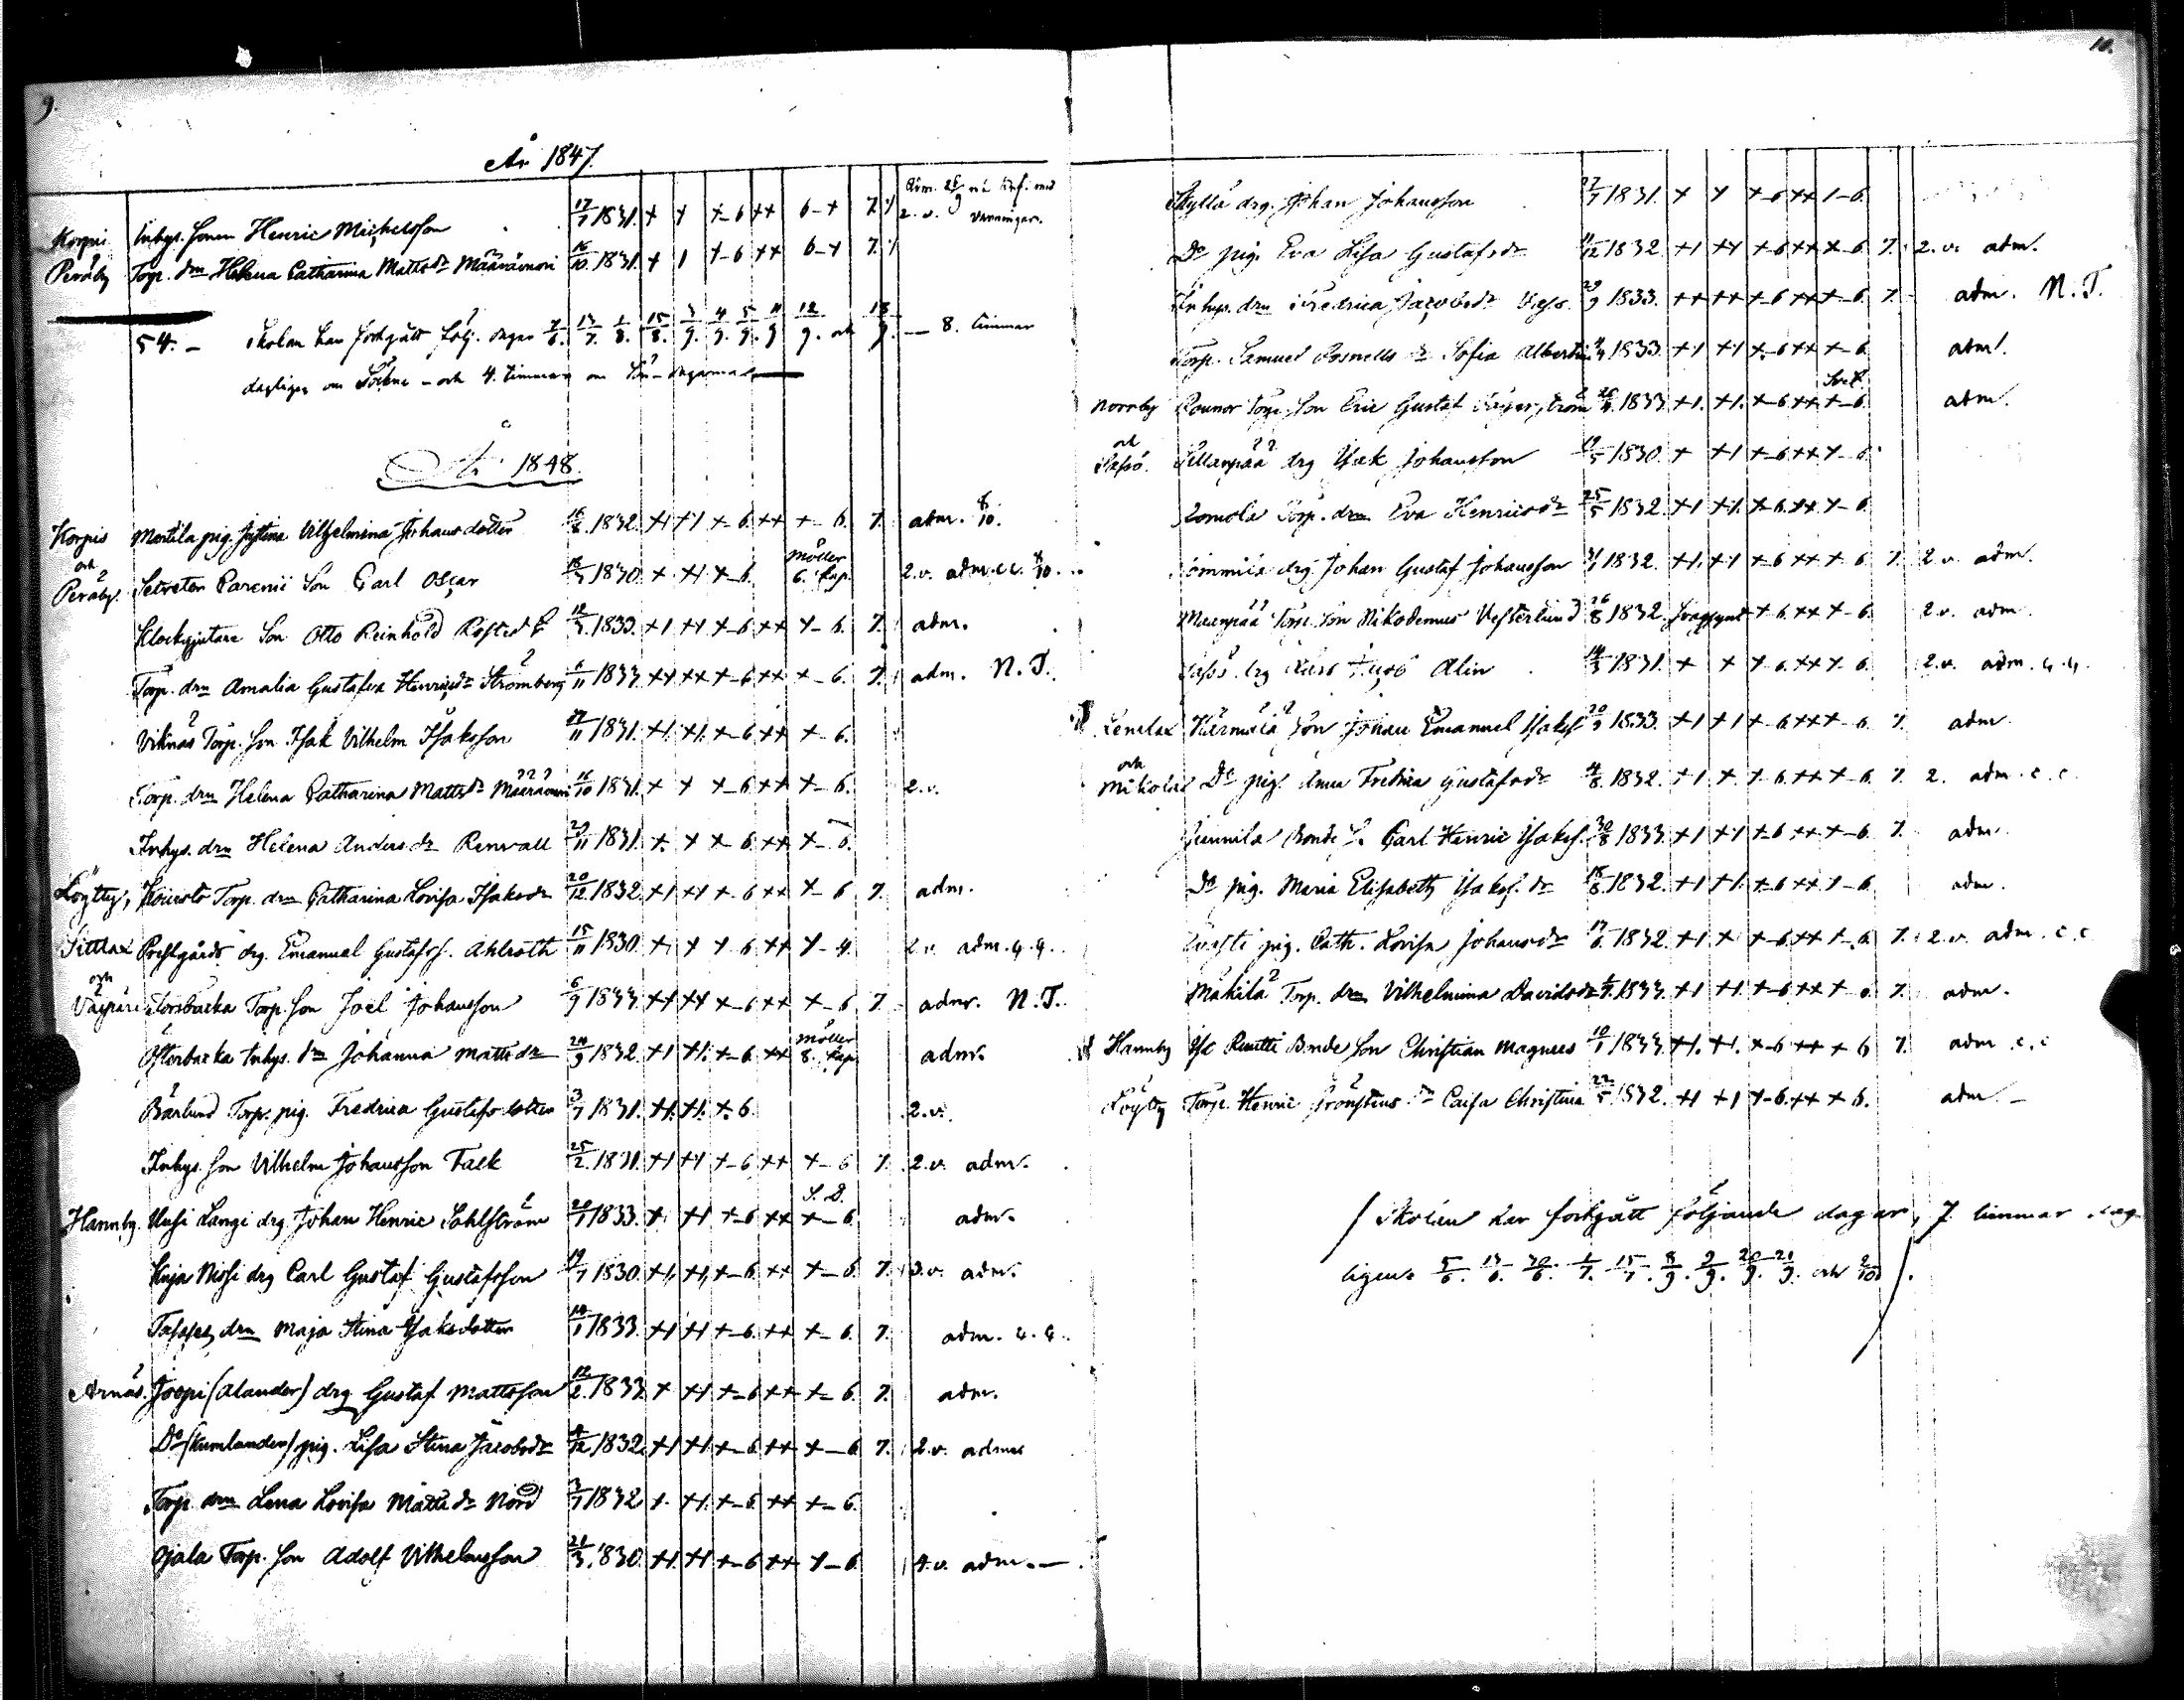 9.
År 1847.
Adm. 26/9 med
2. v. varningar.
Korpis Inhys. Sonen Henric Michelsson 17/7 1831. + + +-6 ++ 6-+ 7.
Peräby Torp. drn Helena Catharina Mattsdr Määrävuori 16/10. 1831. + 1 +-6 ++ 6-+ 7.
54. - Skolan har fortgått följ. dagar 13/7. 1/8. 15/8. 3/9. 4/9. 5/9. 11/9 12/9. och 18/9. — 8. timmar
dagligen om Sökne - och 4. timmar om Sön-dagarna
År 1848.
Korpis Martila pig. Justina Vilhelmina Johansdotter 16/8. 1832. +1 +1 +-6. ++ +-6. 7. adm. 8/10.
och
Peräby. Son Carl Oscar 1830. + +1 +-6. Möller 6. Kap. 2.v. adm. c.c. 8/10.
Klockgjutare Son Otto Reinhold Rostedt 12/3. 1833. +1 ++ +-6 ++ +-6. 7. adm.
Torp. drn Amalia Gustafva Henricsdr Strömberg 6/11 1833. ++ ++ +-6 ++ +-6. 7. adm. N.T.
Viknäs Torp. Son Isak Vilhelm Isaksson 1831. +1. +1. +-6 ++ +-6.
Torp. drn Helena Catharina Mattsdr Määrävuori 16/10 1831. + + +-6 ++ +-6. 2.v.
Inhys. drn Helena Andersdr Renvall 29/11 1831. +. + +-6. ++ +-6.
Löytty, Torp. drn Catharina Lovisa Isaksdr 20/12. 1832. +1 ++ +-6 ++ +-6 7. adm.
Tittlax Prestgårds drg. Emanuel Gustafss. Ahlroth 15/11 1830. +1 + +-6 ++ +-4. 2.v. adm. 4.4.
och
Torsbacka Torp. Son Joel Johansson 6/9 1833. ++ ++ +-6 ++ +-6 7. adm. N.T.
Österbacka Inhys. drn Johanna Mattsdr 24/9 1832. +1 +1. +-6 ++ Möller 8. Kap. adm.
Bärlund Torp. pig. Fredrica Gustafsdotter 3/7 1831. +1. +1. +-6 2.v.
Inhys. Son Vilhelm Johansson Falk 25/2. 1831. +1 ++ +-6 ++ +-6 7. 2.v. adm.
S.D.
Hannby. Uusi Langi drg. Johan Henric Sahlström 20/7 1833. +. ++ +-6 ++ +-6. adm.
Nissi drg Carl Gustaf Gustafsson 19/7 1830. +1. +1. +-6 ++ +-6. 7. 3.v. adm.
drn Maja Stina Isaksdotter 14/1 1833. +1 ++ +-6. ++ +-6. 7. adm. 4.4.
Arnäs. Joopi (Alander) drg Gustaf Mattsson 12/2. 1833. + ++ +-6 ++ +-6. 7. adm.
Do (Kumlander) pig. Lisa Stina Jacobsdr 4/12 1832. +1 +1. +-6 ++ +-6. 7. 2.v. adm.
Torp. drn Lena Lovisa Mattsdr Nord 3/7 1832 +. ++. +-6. ++ +-6.
Ojala Torp. Son Adolf Vilhelmsson 21/3. 1830. +1. +1 +-6 ++ +-6. 4.v. adm. —
10.
Skyllä drg. Johan Johansson 27/7 1831. + + +-6 ++ 1-6.
Do pig. Eva Lisa Gustafsdr 11/12 1832. +1 ++ +-6 ++ +-6. 7. 2.v. adm.
Inhys. drn Fredrica Jacobsdr 29/9 1833. ++ ++ +-6 ++ +-6. 7. adm. N.T.
Torp. Samuel Rosnells dr Sofia Albertina 1833. +1 +1 +-6 ++ +-6. adm.
Norrby Torp. Son Eric Gustaf 1833. +1. +1. +-6 ++ +-6. adm.
och
Sassö. Sillanpää drg Isak Johansson 1830. + +1 +-6 ++ +-6.
Torp. drn Eva Henricsdr 25/5 1832. +1 ++. +-6. ++ +-6.
drg. Johan Gustaf Johansson 3/1 1832. +1. ++ +-6 ++ +-6. 7. 2.v. adm.
Torp. Son Nikodemus Vesterlund 26/8 1832. +-6. ++ +-6. 2.v. adm.
Sassö drg Alin 14/3 1831. + + +-6. ++ +-6. 2.v. adm. 4.4.
Lemlax Son Johan Emanuel Isakss. 20/9 1833. +1 +1 +-6 ++ +-6. 7. adm.
och
Do pig. Fredrica Gustafsdr 4/8. 1832. +1 +. +-6. ++ +-6. 7. 2. adm. c.c.
Bonde S. Carl Henric Isakss. 30/8 1833. +1 ++ +-6 ++ +-6. 7. adm.
Do pig. Maria Elisabeth Isakss. dr 18/8. 1832. +1 +1. +-6 ++ +-6. adm.
pig. Cath. Lovisa Johansdr 17/6. 1832. +1 + +-6 ++ +-6. 7. 2.v. adm. c.c.
Mäkilä Torp. drn Vilhelmina Davidsdr 1833. +1 +1. +-6 ++ +-6. 7. adm.
Hannby Bonde Son Christian Magnus 10/1 1833. +1. +1. +-6 ++ +-6 7. adm. c.c
Löytty Torp. Henric dr Caisa Christina 22/5 1832. +1 +1 +-6. ++ +-6. adm. —
/ Skolan har fortgått följande dagar, 7. timmar dag-
ligen. 5/6. 13/6. 30/6. 1/7. 15/7. 8/9. 9/9. 20/9. 21/9. och 2/10 /.